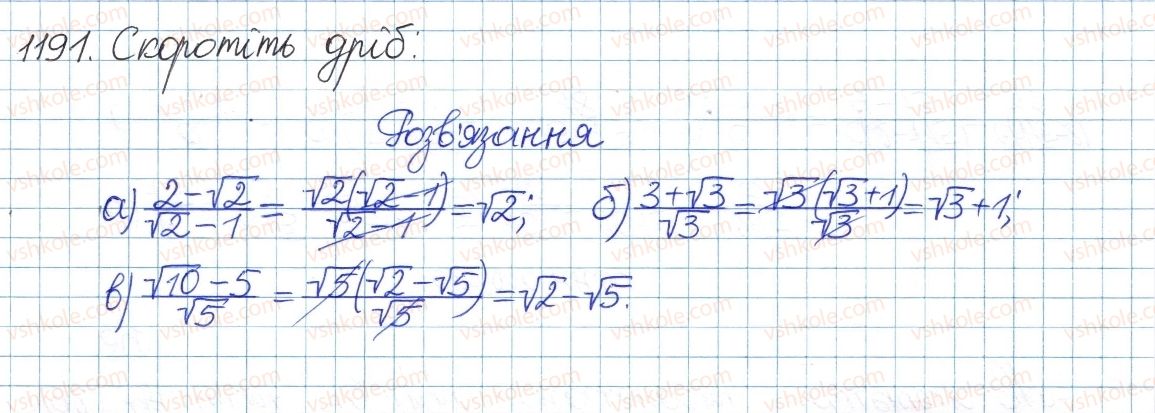 1191. Скоротіть дріб:
Розв'язання
а) (2-√2)/(√2-1) = (√2(√2-1))/(√2-1) = √2; б) (3+√3)/√3 = (√3(√3+1))/√3 = √3+1;
в) (√10-5)/√5 = (√5(√2-√5))/√5 = √2-√5.